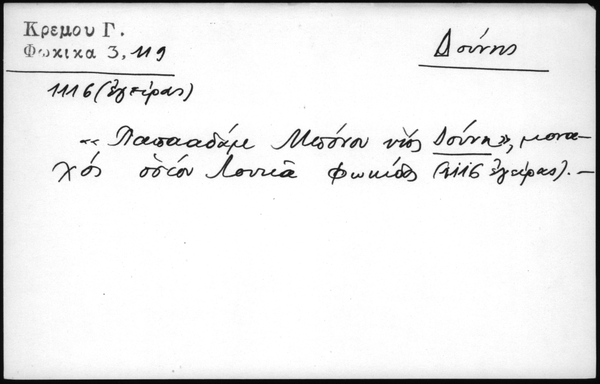 Κρεμου Γ.
Φωκικα 3, 119
Δούνης
1116 (ἐγείρας)
« Παπααδάμε Μπόνου υἱὸς Δούνη», μονα-
χός ὁσίου Λουκᾶ Φωκίδος (1116 ἐγείρας). —